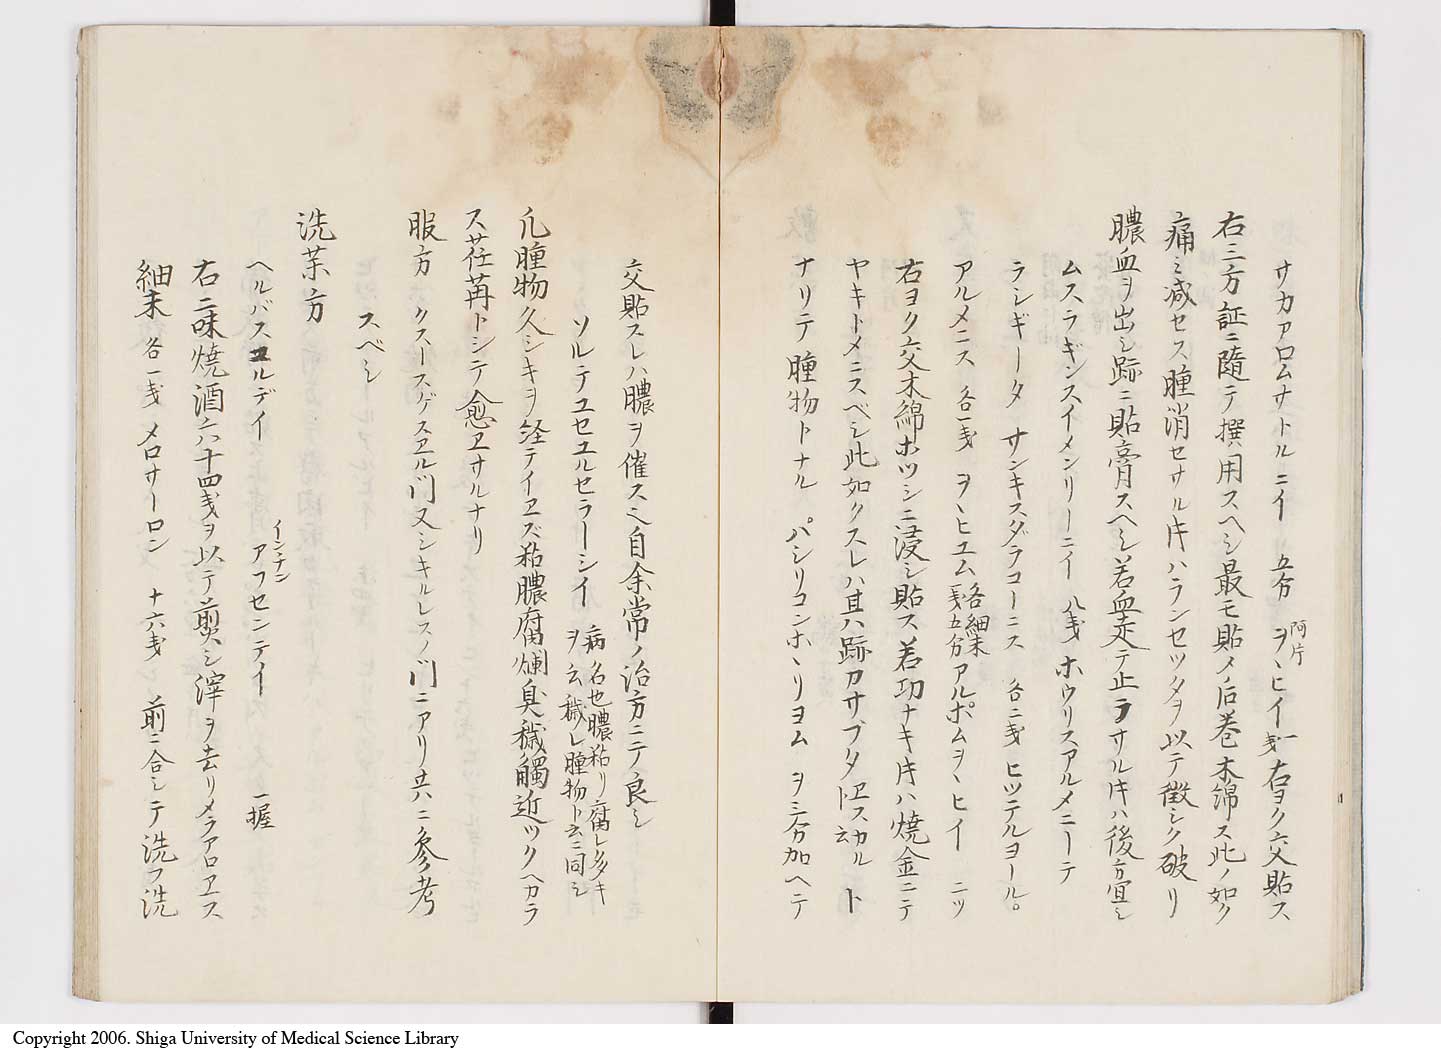 サカアロムサトルニイ 五分 阿片 ヲヽヒイ 一戔 右ヨク交貼ス
右三方証ニ随テ撰用スヘシ最モ貼メノ后巻木綿ス此ノ如ク
痛ミ減セス腫消セサル𪜈ハランセツタヲ以テ徴シク破リ
膿血ヲ出シ跡ニ貼膏スヘシ若血走テ止ラサル𪜈ハ後方宜シ
ムスラギンスイメンリーニイ 八戔 ホウリスアルメニーテ
ラシギータ サンキスダラコーニス 各二戔 ヒツテルヨール。
アルメニス 各一戔 ヲヽヒユム 各細末 戔五分 アルポムヲヽヒイ 二ツ
右ヨク交木綿ホツシニ浸シ貼ス若功ナキ𪜈ハ焼金ニテ
ヤキトメニスベシ此如クスレハ其ハ跡カサブタヱスカルト云 ト
ナリテ腫物トナル パシリコンホヽリヨム ヲ三分加ヘテ
交貼スレハ膿ヲ催ス之自余常ノ治方ニテ良シ
ソルテユセユルセラーシイ 病名也膿粘リ腐レ多キ ヲ云穢レ腫物ト云ニ同シ
凡腫物久シキヲ経テイヱズ粘膿腐爛臭穢觸近ツクヘカラ
ス荏苒トシテ愈ヱサルナリ
服方クスースゲスヱル門又シキルレスノ門ニアリ共ニ参考
スベシ
洗薬方
ヘルバスコルデイ インチン アフセンテイー 一握
右二味焼酒六十四戔ヲ以テ煎シ滓ヲ去リメラアロヱス
細末 各一戔 メロサーロン 十六戔 前ニ合シテ洗フ洗
Copyright 2006. Shiga University of Medical Science Library